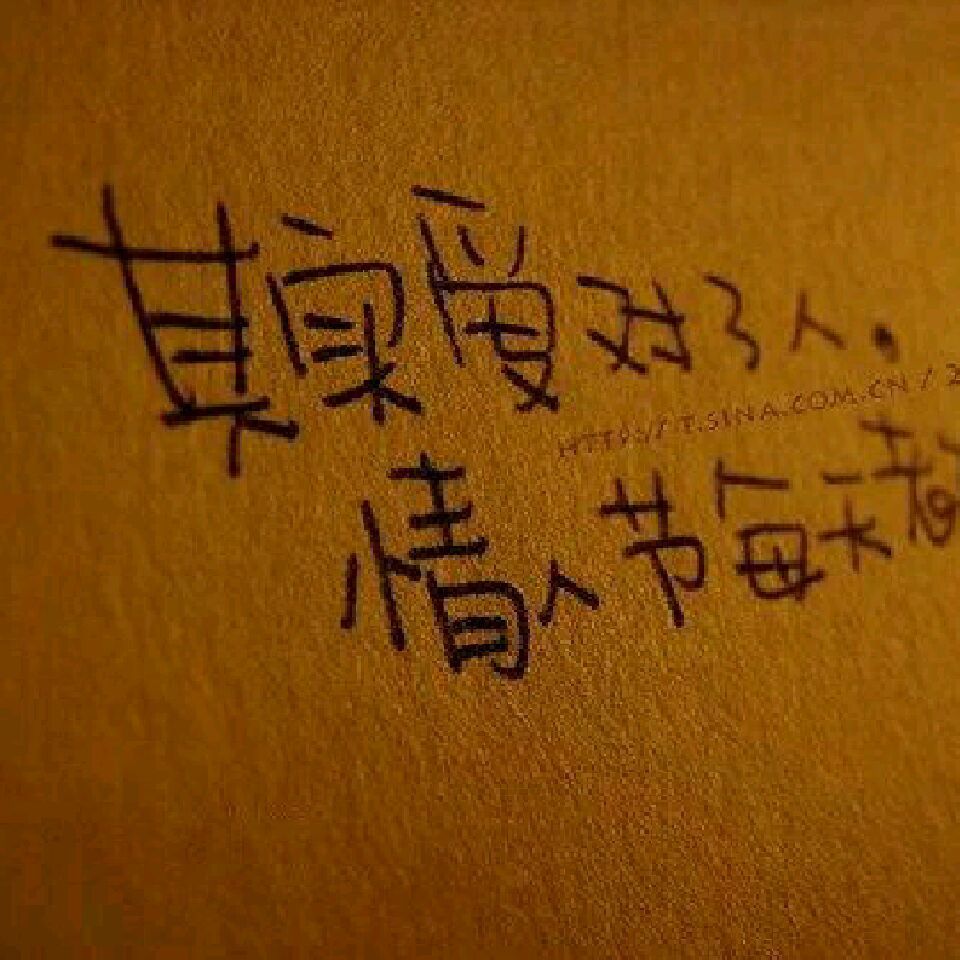 其实爱对了人。
HTTP://T.SINA.COM.CN/2
情人节每天都